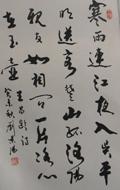 寒雨連江夜入吳平
明送客楚山孤洛陽
親友如相問一片冰心
在玉壺
王昌齡詩
癸未秋劉